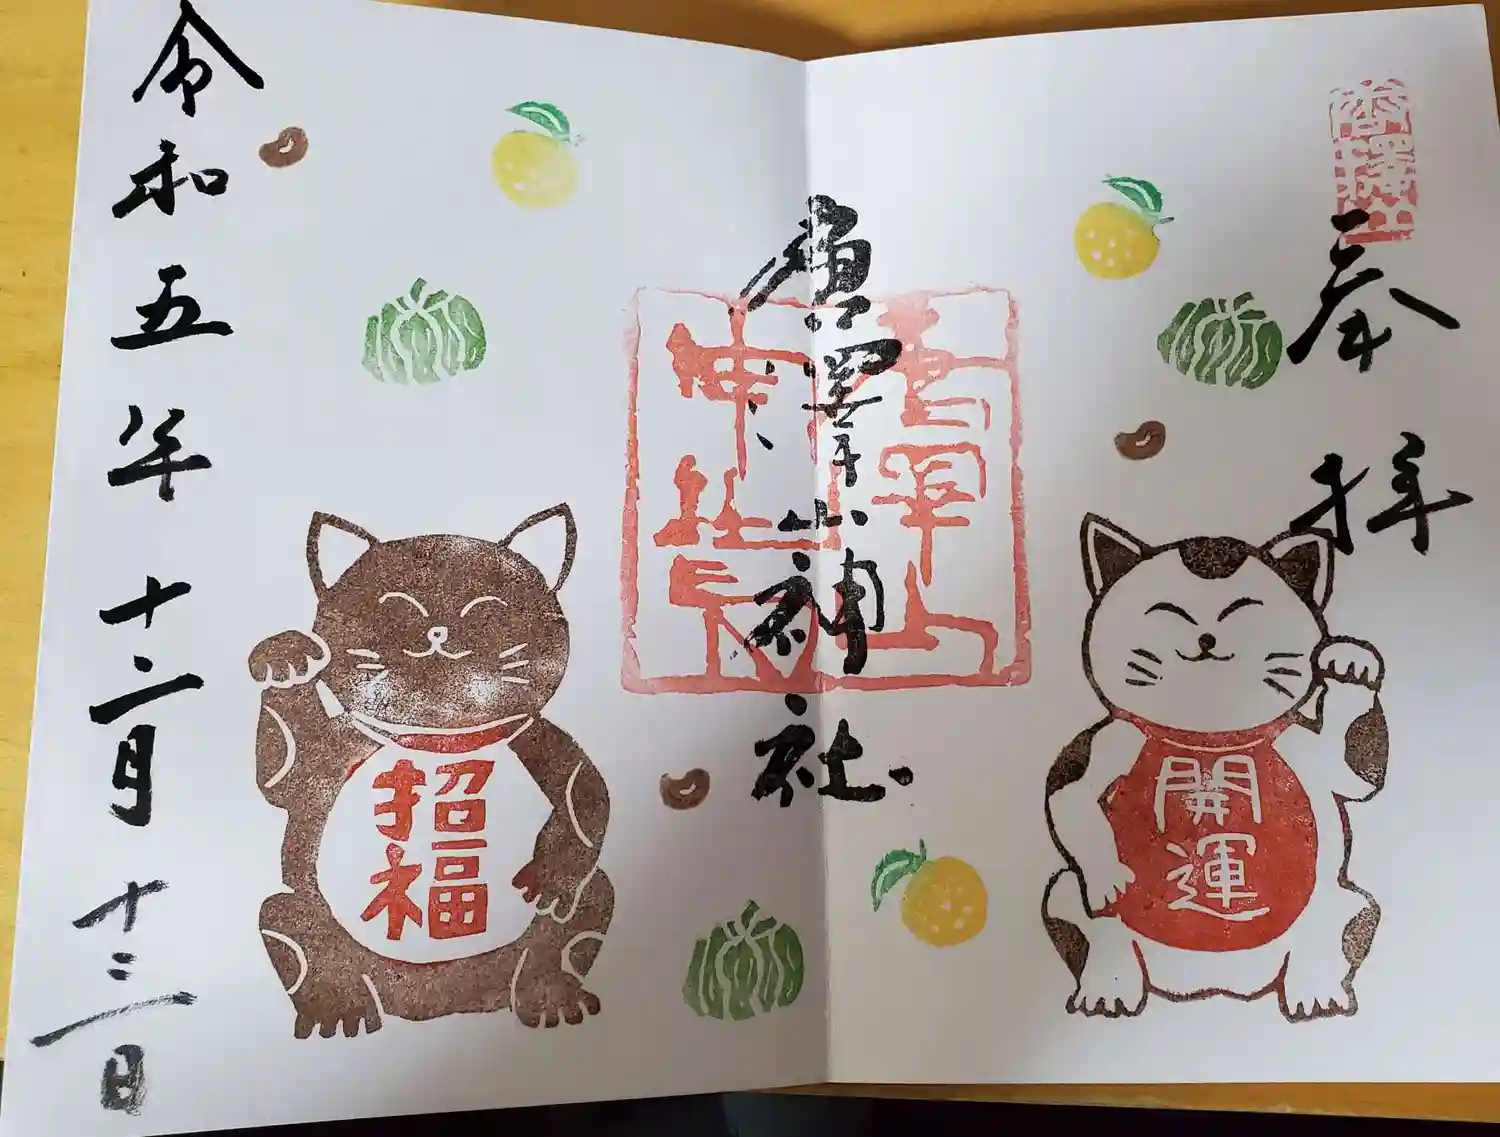 奉拝
唐澤山神社
開運
招福
令和五年十二月十三日